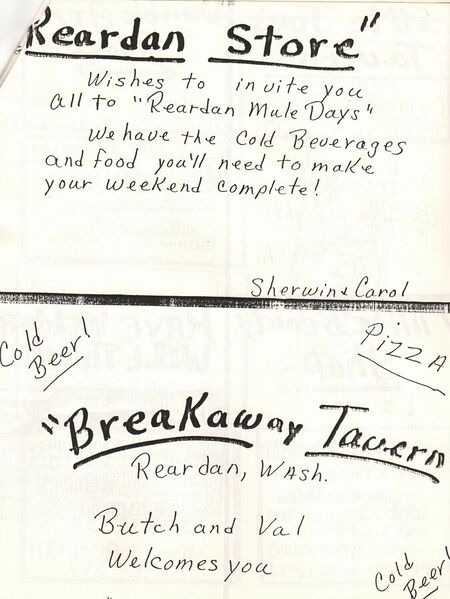 "Reardan Store"
Wishes to invite you
all to "Reardan Mule Days"
We have the Cold Beverages
and food you'll need to make
your weekend complete!
Sherwin & Carol
Cold
Beer!
PIZZA
"Breakaway Tavern
Reardan, WAsh.
Butch and Val
Welcomes you
Cold
Beer!